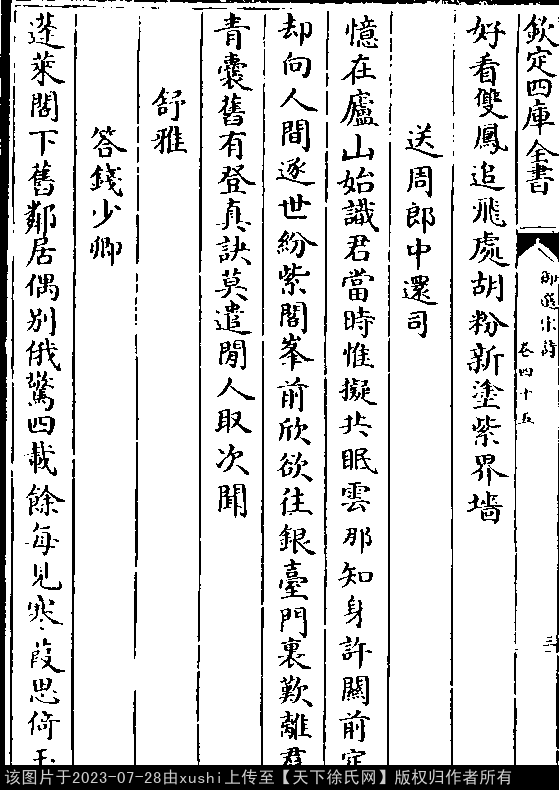 欽定四庫全書
御選宋詩
卷四十五
三
好看雙鳳追飛處胡粉新塗紫界墻
送周郎中還司
憶在廬山始識君當時惟擬共眠雲那知身許闗前定
却向人間逐世紛紫閣峯前欣欲往銀臺門裏歎離羣
青囊舊有登真訣莫遣閒人取次聞
舒雅
答錢少卿
蓬萊閣下舊鄰居偶别俄驚四載餘每見寒葭思倚玉
该图片于2023-07-28由xushi上传至【天下徐氏网】版权归作者所有